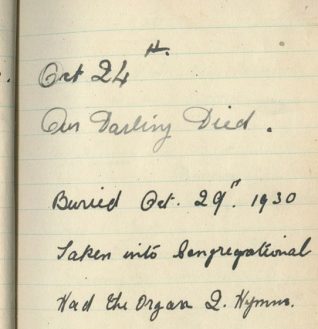 Oct 24th.
Our Darling Died.
Buried Oct. 29th. 1930
Taken into Congregational
Had the Organ 2. Hymns.